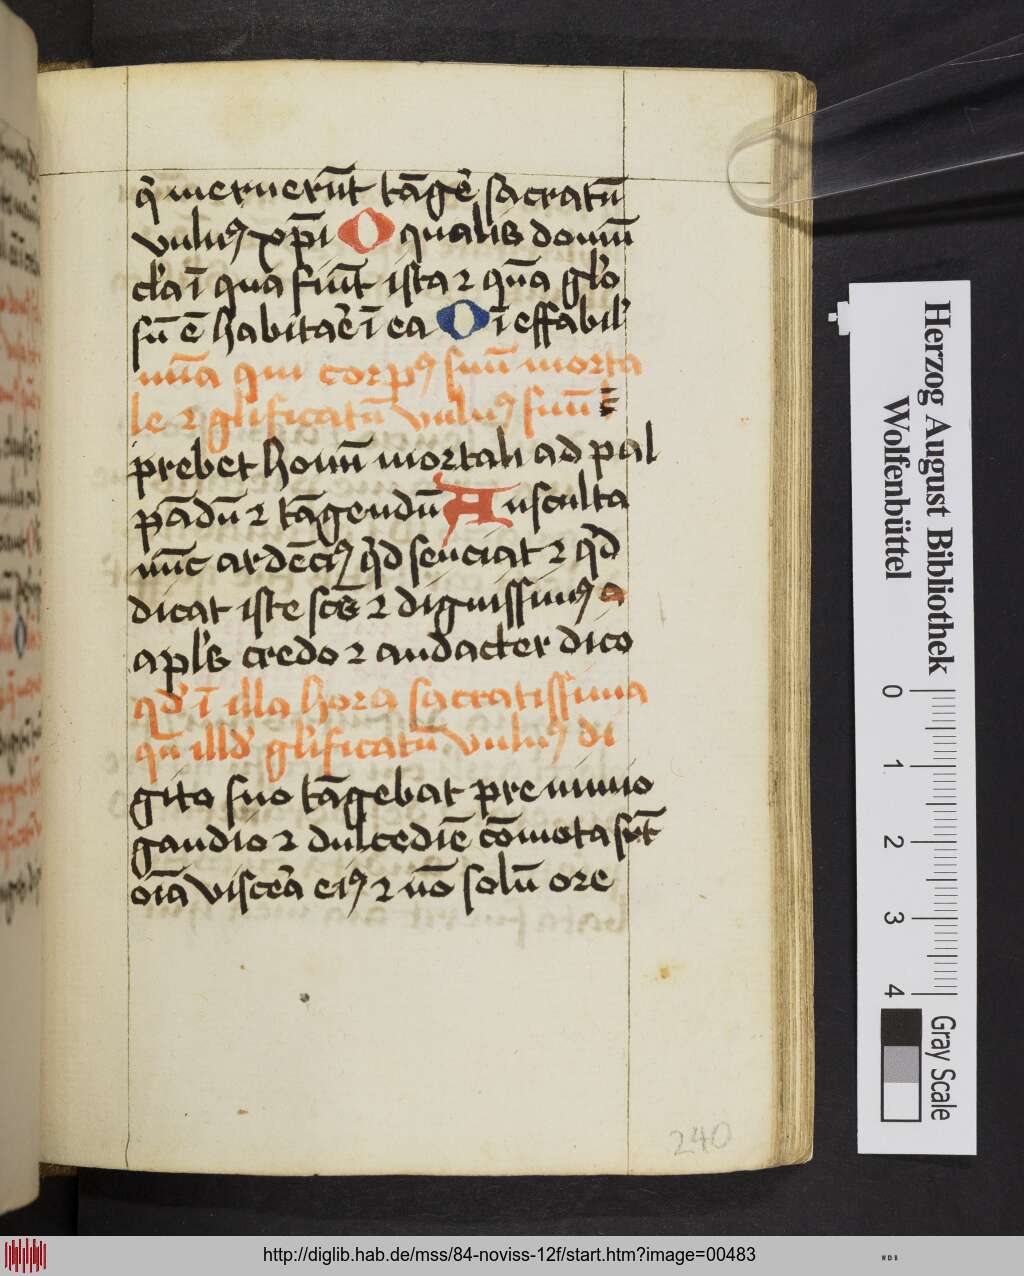 q̄ meruerūt tāgē sacratū
vulnꝰ xp̄i O qualis domū
cl'a ī qua fiūt ista ⁊ qn̄a gl'o
sū ē habitarē ī ea O ī effabil'
nūa qui corpꝰ suū morta
le ⁊ gl'ificatū vulnꝰ suū
prebet homī mortali ad pal
pādū ⁊ tāgendū Ausculta
nūc ardēciꝰ qd senciat ⁊ qd
dicat iste scs ⁊ dignissimꝰ a
apl's credo ⁊ audacter dico
qd ī illa hora sacratissima
qn̄ illd gl'ificatū vulnꝰ di
gito suo tāgebat pre nimio
gaudio ⁊ dulcediē cōmota sūt
oīa viscēa eiꝰ ⁊ nō solū ore
240
Herzog August Bibliothek
Wolfenbüttel
0 1 2 3 4
Gray Scale
http://diglib.hab.de/mss/84-noviss-12f/start.htm?image=00483